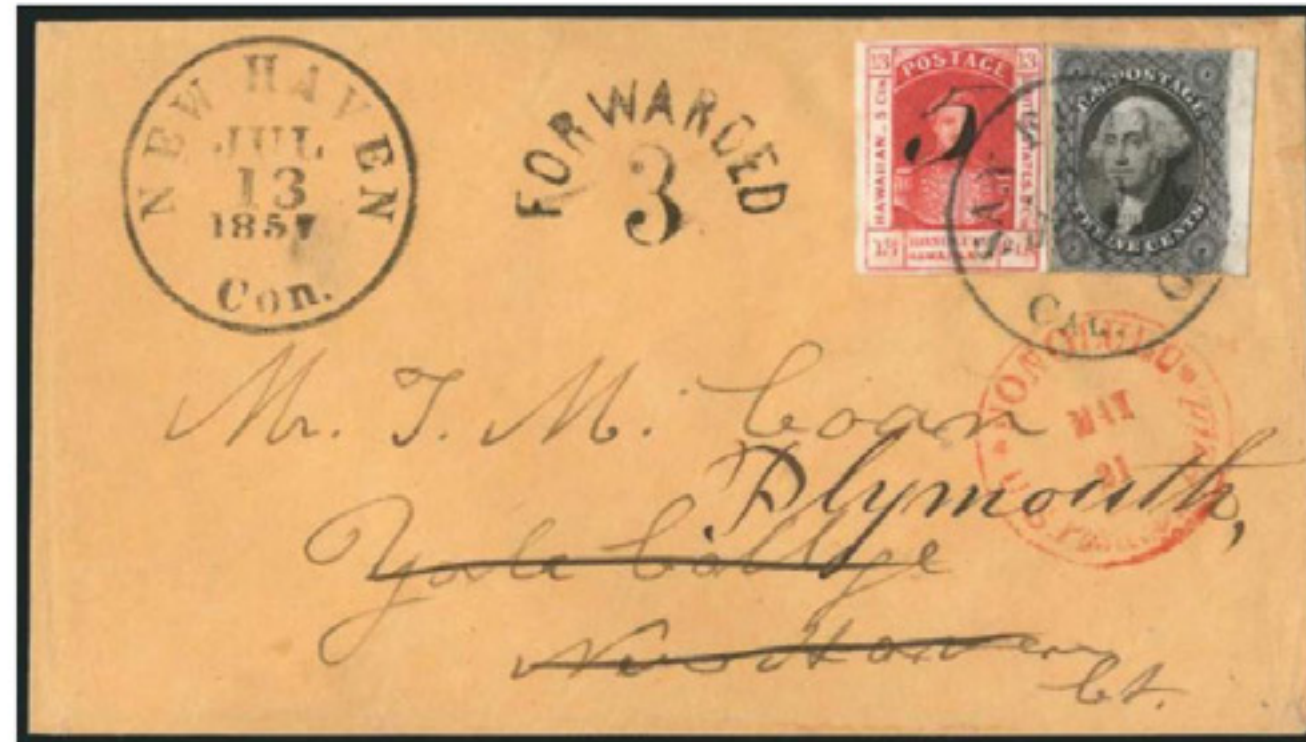 NEW HAVEN
JUL
13
1857
Con.
FORWARDED
3
POSTAGE
13
13
HAWAIIAN 5 Cts.
5
U.S. POSTAGE
TWELVE CENTS
SAN
CAL.
HONOLULU
U.S. Postage Paid
21
Mr. T. M. Coan
Plymouth,
Yale College
New Haven
Ct.